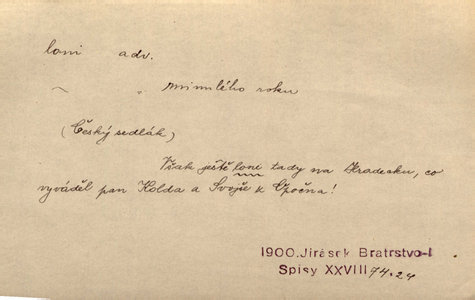 loni adv.
~ „ minulého roku
(Český sedlák)
Však ještě loni tady na Hradecku, co
vyváděl pan Kolda a Svojše k Opočna!
1900. Jirásek Bratrstvo-I
Spisy XXVIII 74.24